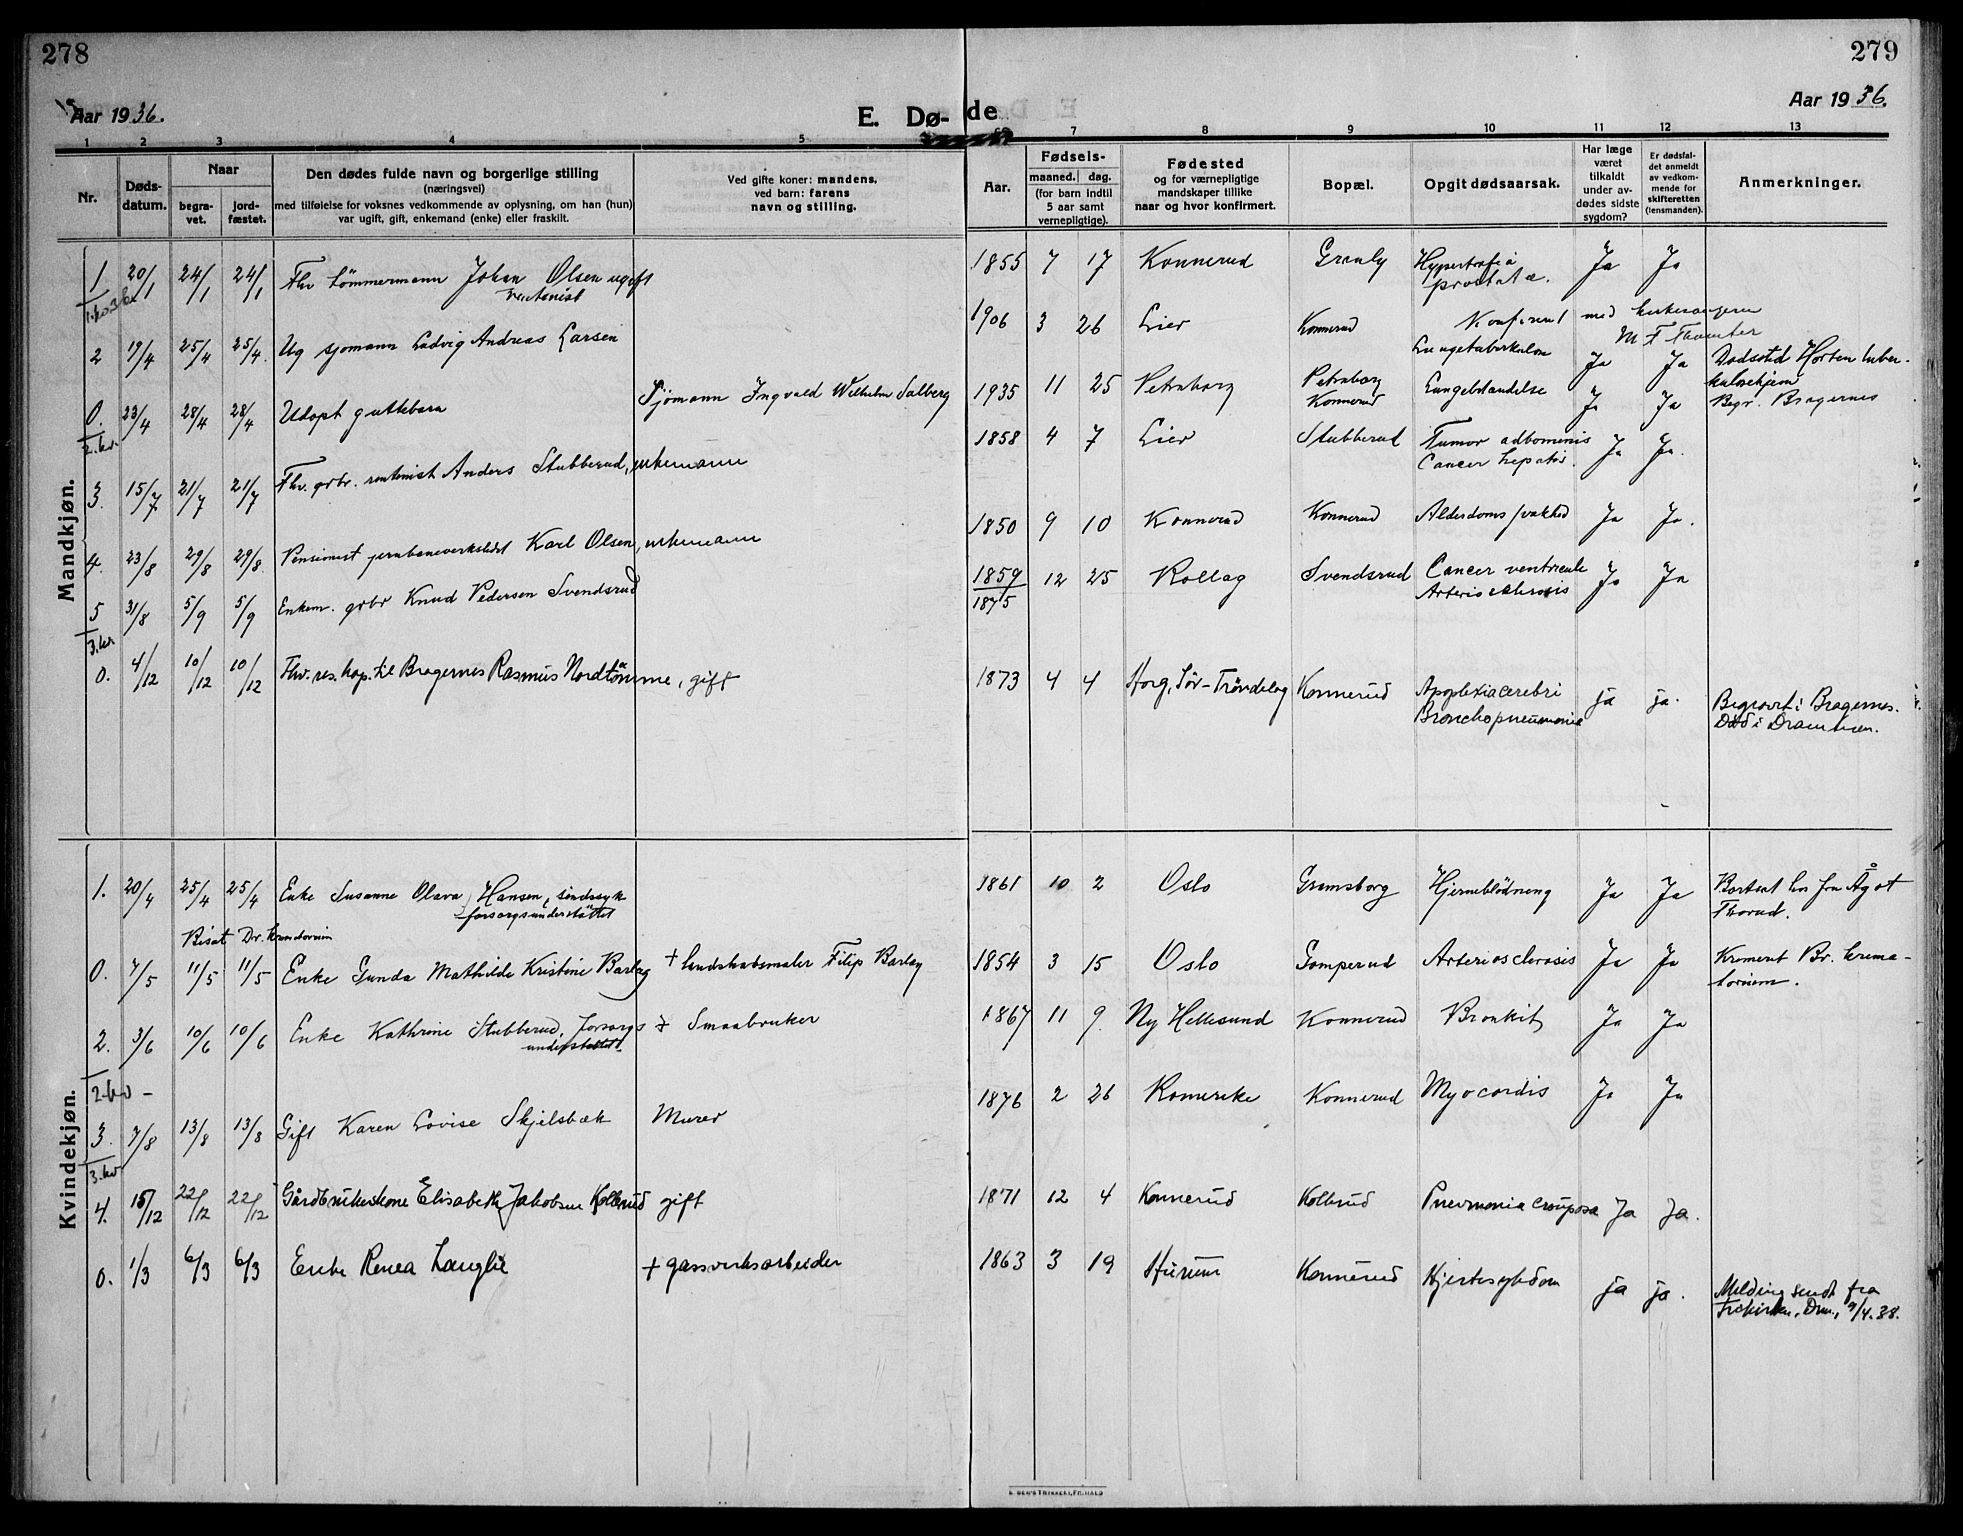 278
279
Aar 1936.
E. Døde
Aar 1936.
1 2 3 4 5 7 8 9 10 11 12 13
Nr.
Døds-
datum.
Naar
begra-
vet.
jord-
fæstet.
Den dødes fulde navn og borgerlige stilling
(næringsvei)
med tilføielse for voksnes vedkommende av oplysning, om han (hun)
var ugift, gift, enkemand (enke) eller fraskilt.
Ved gifte koner: mandens,
ved barn: farens
navn og stilling.
Aar.
Fødsels-
maaned. dag.
(for barn indtil
5 aar samt
vernepligtige).
Fødested
og for værnepligtige
mandskaper tillike
naar og hvor konfirmert.
Bopæl.
Opgit dødsaarsak.
Har læge
været
tilkaldt
under av-
dødes sidste
sygdom?
Er dødsfal-
det anmeldt
av vedkom-
mende for
skifteretten
(lensmanden).
Anmerkninger.
Mandkjøn.
1 20/1 24/1 24/1 Fhv tømmermann Johan Olsen ugift 1855 7 17 Konnerud Granly Hypertrofia Ja Ja
rentenist prostatae.
Konferert med kirkesangeren
2 19/4 25/4 25/4. Ug sjømann Ludvig Andreas Larsen 1906 3 26 Lier Konnerud Lungetuberkulose Ja Ja Dødssted Horten tuber-
kulosehjem
Begr. Bragernes
0. 23/4 28/4 28/4 Udøpt guttebarn Sjømann Ingvald Wilhelm Salberg 1935 11 25 Petraborg Petraborg Lungebetændelse Ja Ja
Konnerud
2.kv.
3. 15/7 21/7 21/7 Fhv. grbr. rentenist Anders Stubberud, enkemann 1858 4 7 Lier Stubberud Tumor adbominis Ja Ja.
Cancer hepatis.
4. 23/8 29/8 29/8. Pensionist jernbaneverksted Karl Olsen, enkemann 1850 9 10 Konnerud Konnerud Alderdomssvakhed Ja Ja.
5 31/8 5/9 5/9 Enkem. grbr Knud Pedersen Svendsrud 1859 12 25 Rollag Svendsrud Cancer ventricule Ja Ja
1875 Arteriosclerosis
3.kv.
0. 4/12 10/12 10/12 Fhv. res. kap. til Bragernes Rasmus Nordtømme, gift 1873 4 4 Horg, Sør-Trøndelag Konnerud Apoplexia cerebri ja ja. Begravet i Bragernes.
Bronchopneumonia Død i Drammen.
Kvindekjøn.
1. 20/4 25/4 25/4 Enke Susanne Olava Hansen, sindssyk 1861 10 2 Oslo Gramsborg Hjerneblødning Ja Ja Bortsat hos fru Ågot
forsorgsunderstøttet Thorud.
Bisat Dr. krematorium
0. 7/5 11/5 11/5 Enke Gunda Mathilde Kristine Barlag + landskabsmaler Filip Barlag 1854 3 15 Oslo Gomperud Arteriosclerosis Ja Ja Kremert Br. krema-
torium.
2. 3/6 10/6 10/6 Enke Kathrine Stubberud, forsorgs + Smaabruker 1867 11 9. Ny Hellesund Konnerud Bronkit Ja Ja
understøttet
2 kv -
3. 7/8 13/8 13/8 Gift Karen Lovise Skjelsbæk Murer 1876 2 26 Romerike Konnerud Myocordis Ja Ja
3.kv
4. 15/12 22/12 22/12 Gårdbrukerkone Elisabeth Jakobsen Kolbrud gift 1871 12 4 Konnerud Kolbrud Pnevmonia crouposa Ja Ja.
0. 1/3 6/3 6/3 Enke Renea Langlie + gassverksarbeider 1863 3 19 Hurum Konnerud Hjertesykdom ja ja. Melding sendt fra
Frikirken, Drm., 9/4.38.